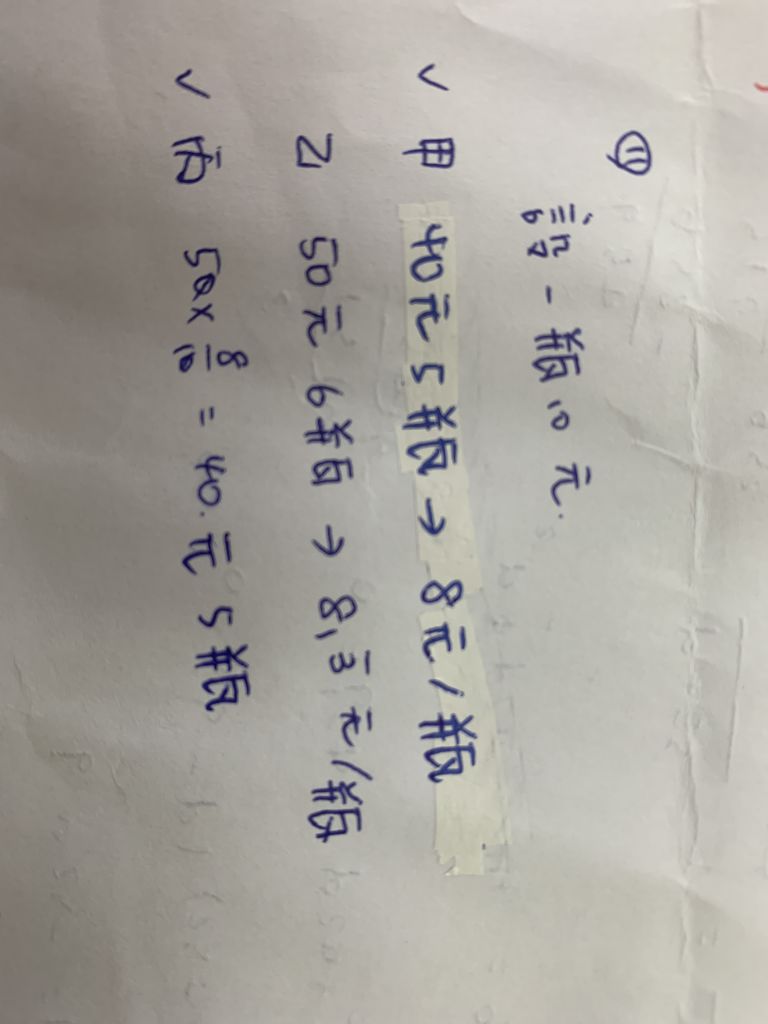 ⑪
設一瓶10元.
✓ 甲 40元5瓶 → 8元/瓶
乙 50元6瓶 → 8.3̅元/瓶
✓ 丙 50×8/10 = 40.元5瓶